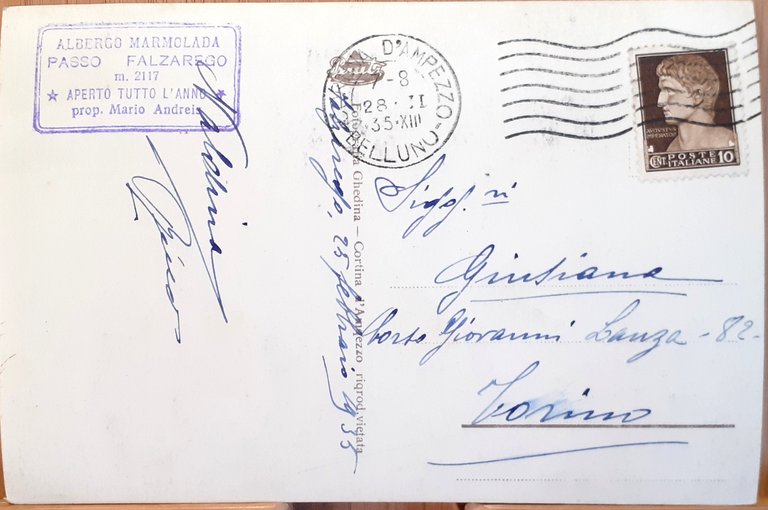 ALBERGO MARMOLADA
PASSO FALZAREGO
m. 2117
★ APERTO TUTTO L'ANNO ★
prop. Mario Andreis
D'AMPEZZO
7-8
28·II
35·XIII
BELLUNO
AVGVSTVS
IMPERATOR
CENT. POSTE ITALIANE 10
Ghedina — Cortina d'Ampezzo riprod. vietata
Falzarego, 25 febbraio 1935
Sigg. ri
Giusiana
Corso Giovanni Lanza - 82-
Torino